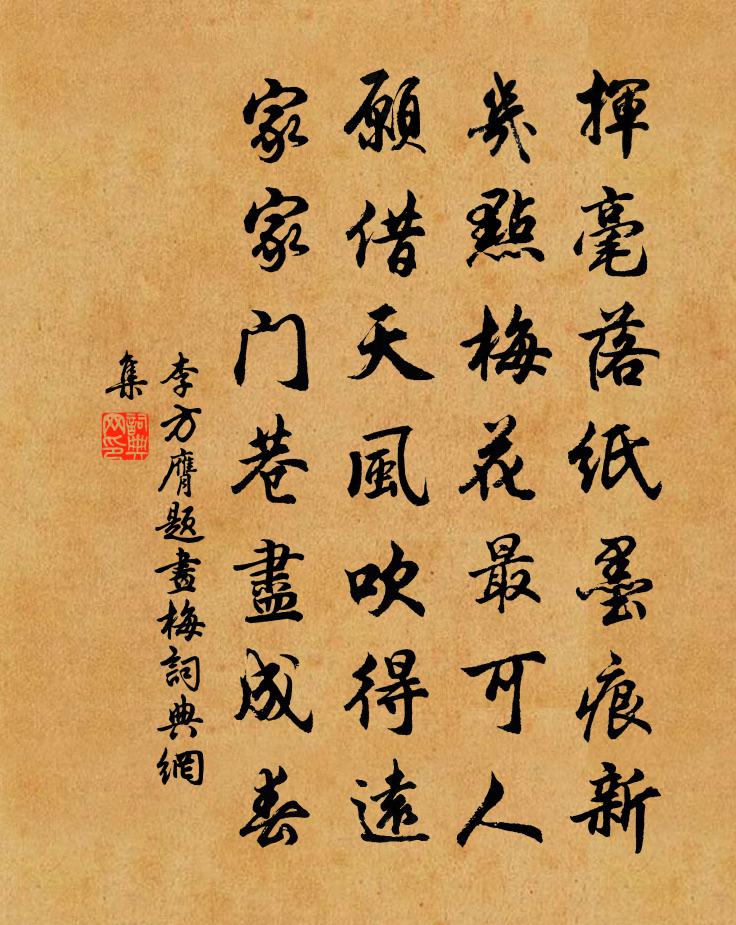 揮毫落紙墨痕新
幾點梅花最可人
願借天風吹得遠
家家門巷盡成春
李方膺題畫梅詞典網
集
詞典網印